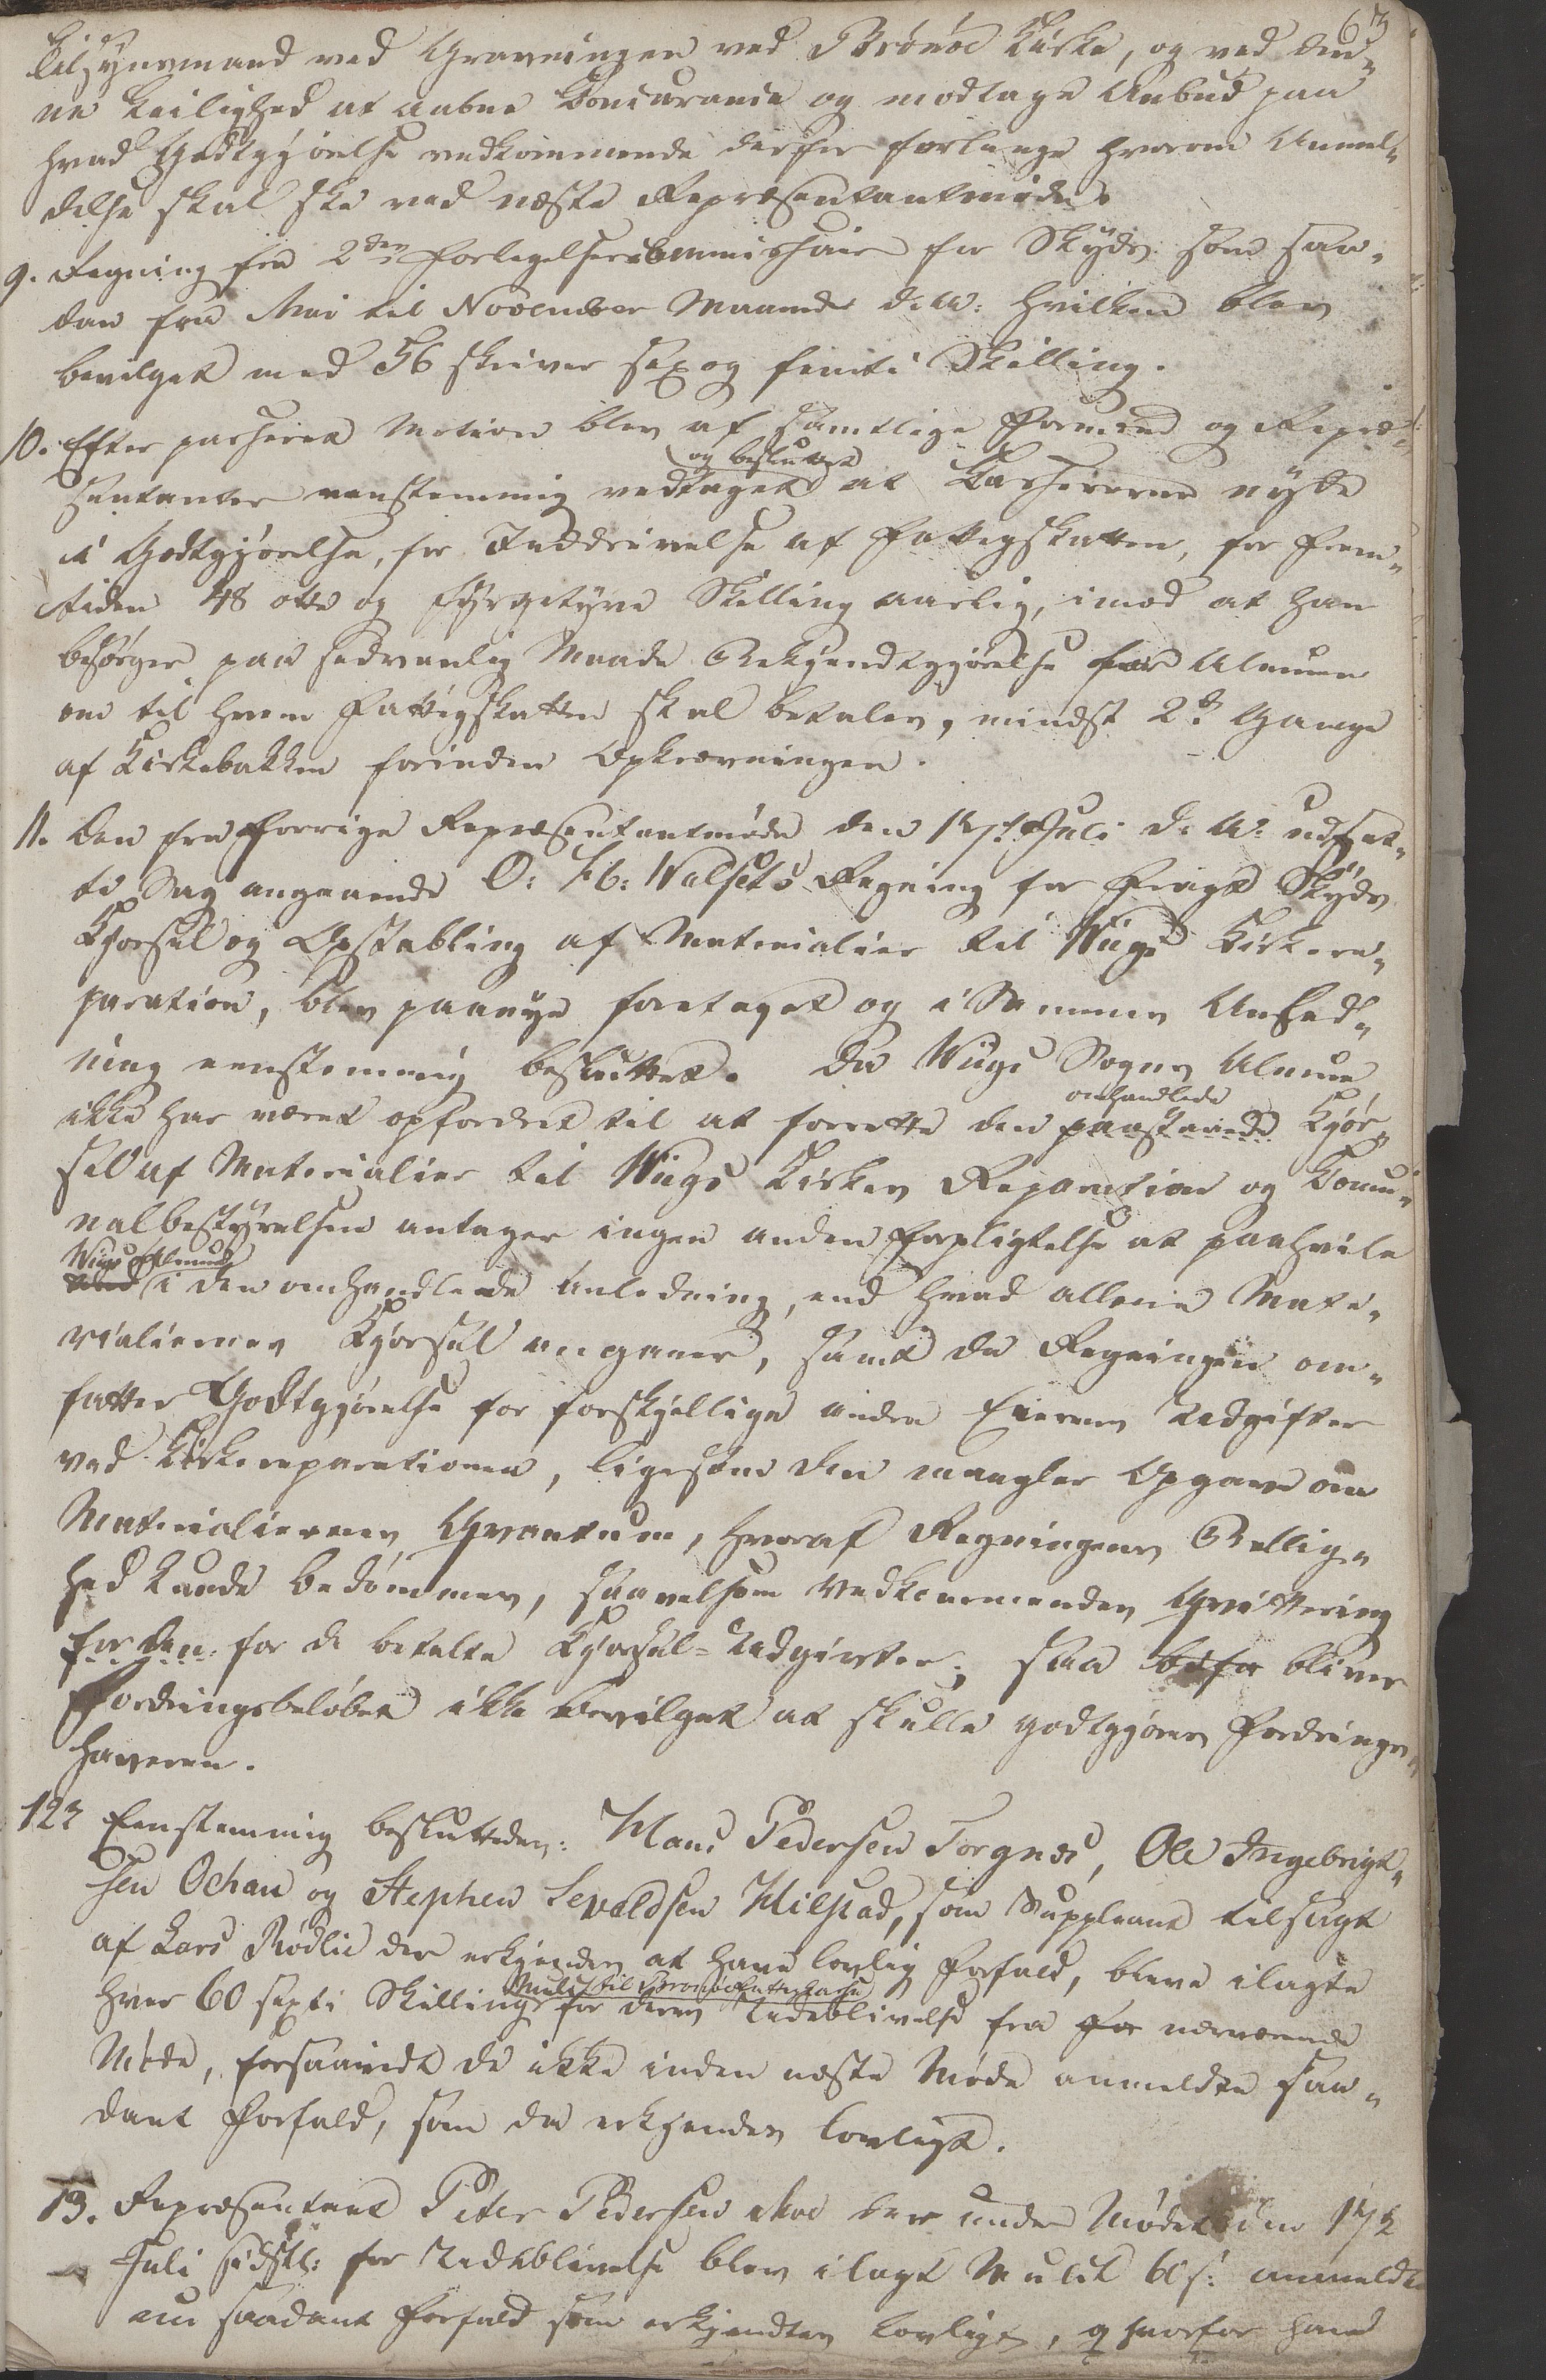 63
Tilsynsmand ved Gravningen ved Brønøe Kirke, og ved den¬
ne Leilighed at aabne Concurance og modtage Anbud paa
hvad Godtgjørelse vedkommende derfor forlange hvorom Anmel¬
delse skal ske ved næste Repræsentantmøde.
9. Regning fra 2den Forligelsescommissair for Skyds som saa¬
dan fra Mai til November Maaned d. A. hvilken blev
bevilget med 56 skriver sex og femti Skilling.
10. Efter passeret Motion blev af samtlige Formænd og Repræ¬
og besluttet
sentanter eenstemmig vedtaget at Kassereren nyde
i Godtgjørelse, for Inddrivelse af Fattigskatten, for Frem¬
tiden 48 otte og fyrgetyve Skilling aarlig, imod at han
besørger paa sedvanlig Maade Bekjendtgjørelse for Almuen
om til hvem Fattigskatten skal betales, mindst 2de Gange
af Kirkebakken forinden Opkrævningen.
11. Den fra forrige Repræsentantmøde den 17de Juli d. A. udsat¬
te Sag angaaende O: Hb: Walsets Regning for Fragt Skyds
Kjørsel og Opstabling af Materialier til Wiigs Kirkere¬
paration, blev paanye foretaget og i Sammes Anled¬
ning eenstemmig besluttet. Da Wiigs Sogns Almue
omhandlede
ikke har været opfordret til at forrette den paastaaede Kjør¬
sel af Materialier til Wiigs Kirkes Reparation og Commu¬
nalbestyrelsen antager ingen anden Forpligtelse at paahvile
Wiigs Almue
i den omhandlede Anledning, end hvad allene Mate¬
rialiernes Kjørsel angaaer, samt da Regningen om¬
fatter Godtgjørelse for forskjellige andre Eierens Udgifter
ved Kirkereparationen, ligesom den mangler Opgave om
Materialiernes Qvantum, hvoraf Regningens Billig¬
hed kunde bedømmes, saavelsom Vedkommendes Qvittering
for den for de betalte Kjørsel-Udgivter; saa bliver
Fordringsbeløbet ikke bevilget at skulle godtgjøres Fordrings¬
haveren.
12 Eenstemmig besluttedes: Hans Pedersen Torgnes, Ole Ingebrigt¬
sen Ochan og Stephen Sevaldsen Hilstad, som Suppleant tilsagt
af Lars Rødlie der erkjendes at have lovlig Forfald, bleve ilagte
Mulct til Brønøe Fattigkasse
hver 60 sexti Skilling for deres Udeblivelse fra nærværende
Møde, forsaavidt de ikke inden næste Møde anmeldte saa¬
dant Forfald, som da erkjendes lovligt.
13. Repræsentant Peter Pedersen Moe der under Mødet den 17de
Juli sidstl: for Udeblivelse blev ilagt Mulct 60 s: anmeldte
nu saadant Forfald som erkjendtes lovligt, hvorfor han